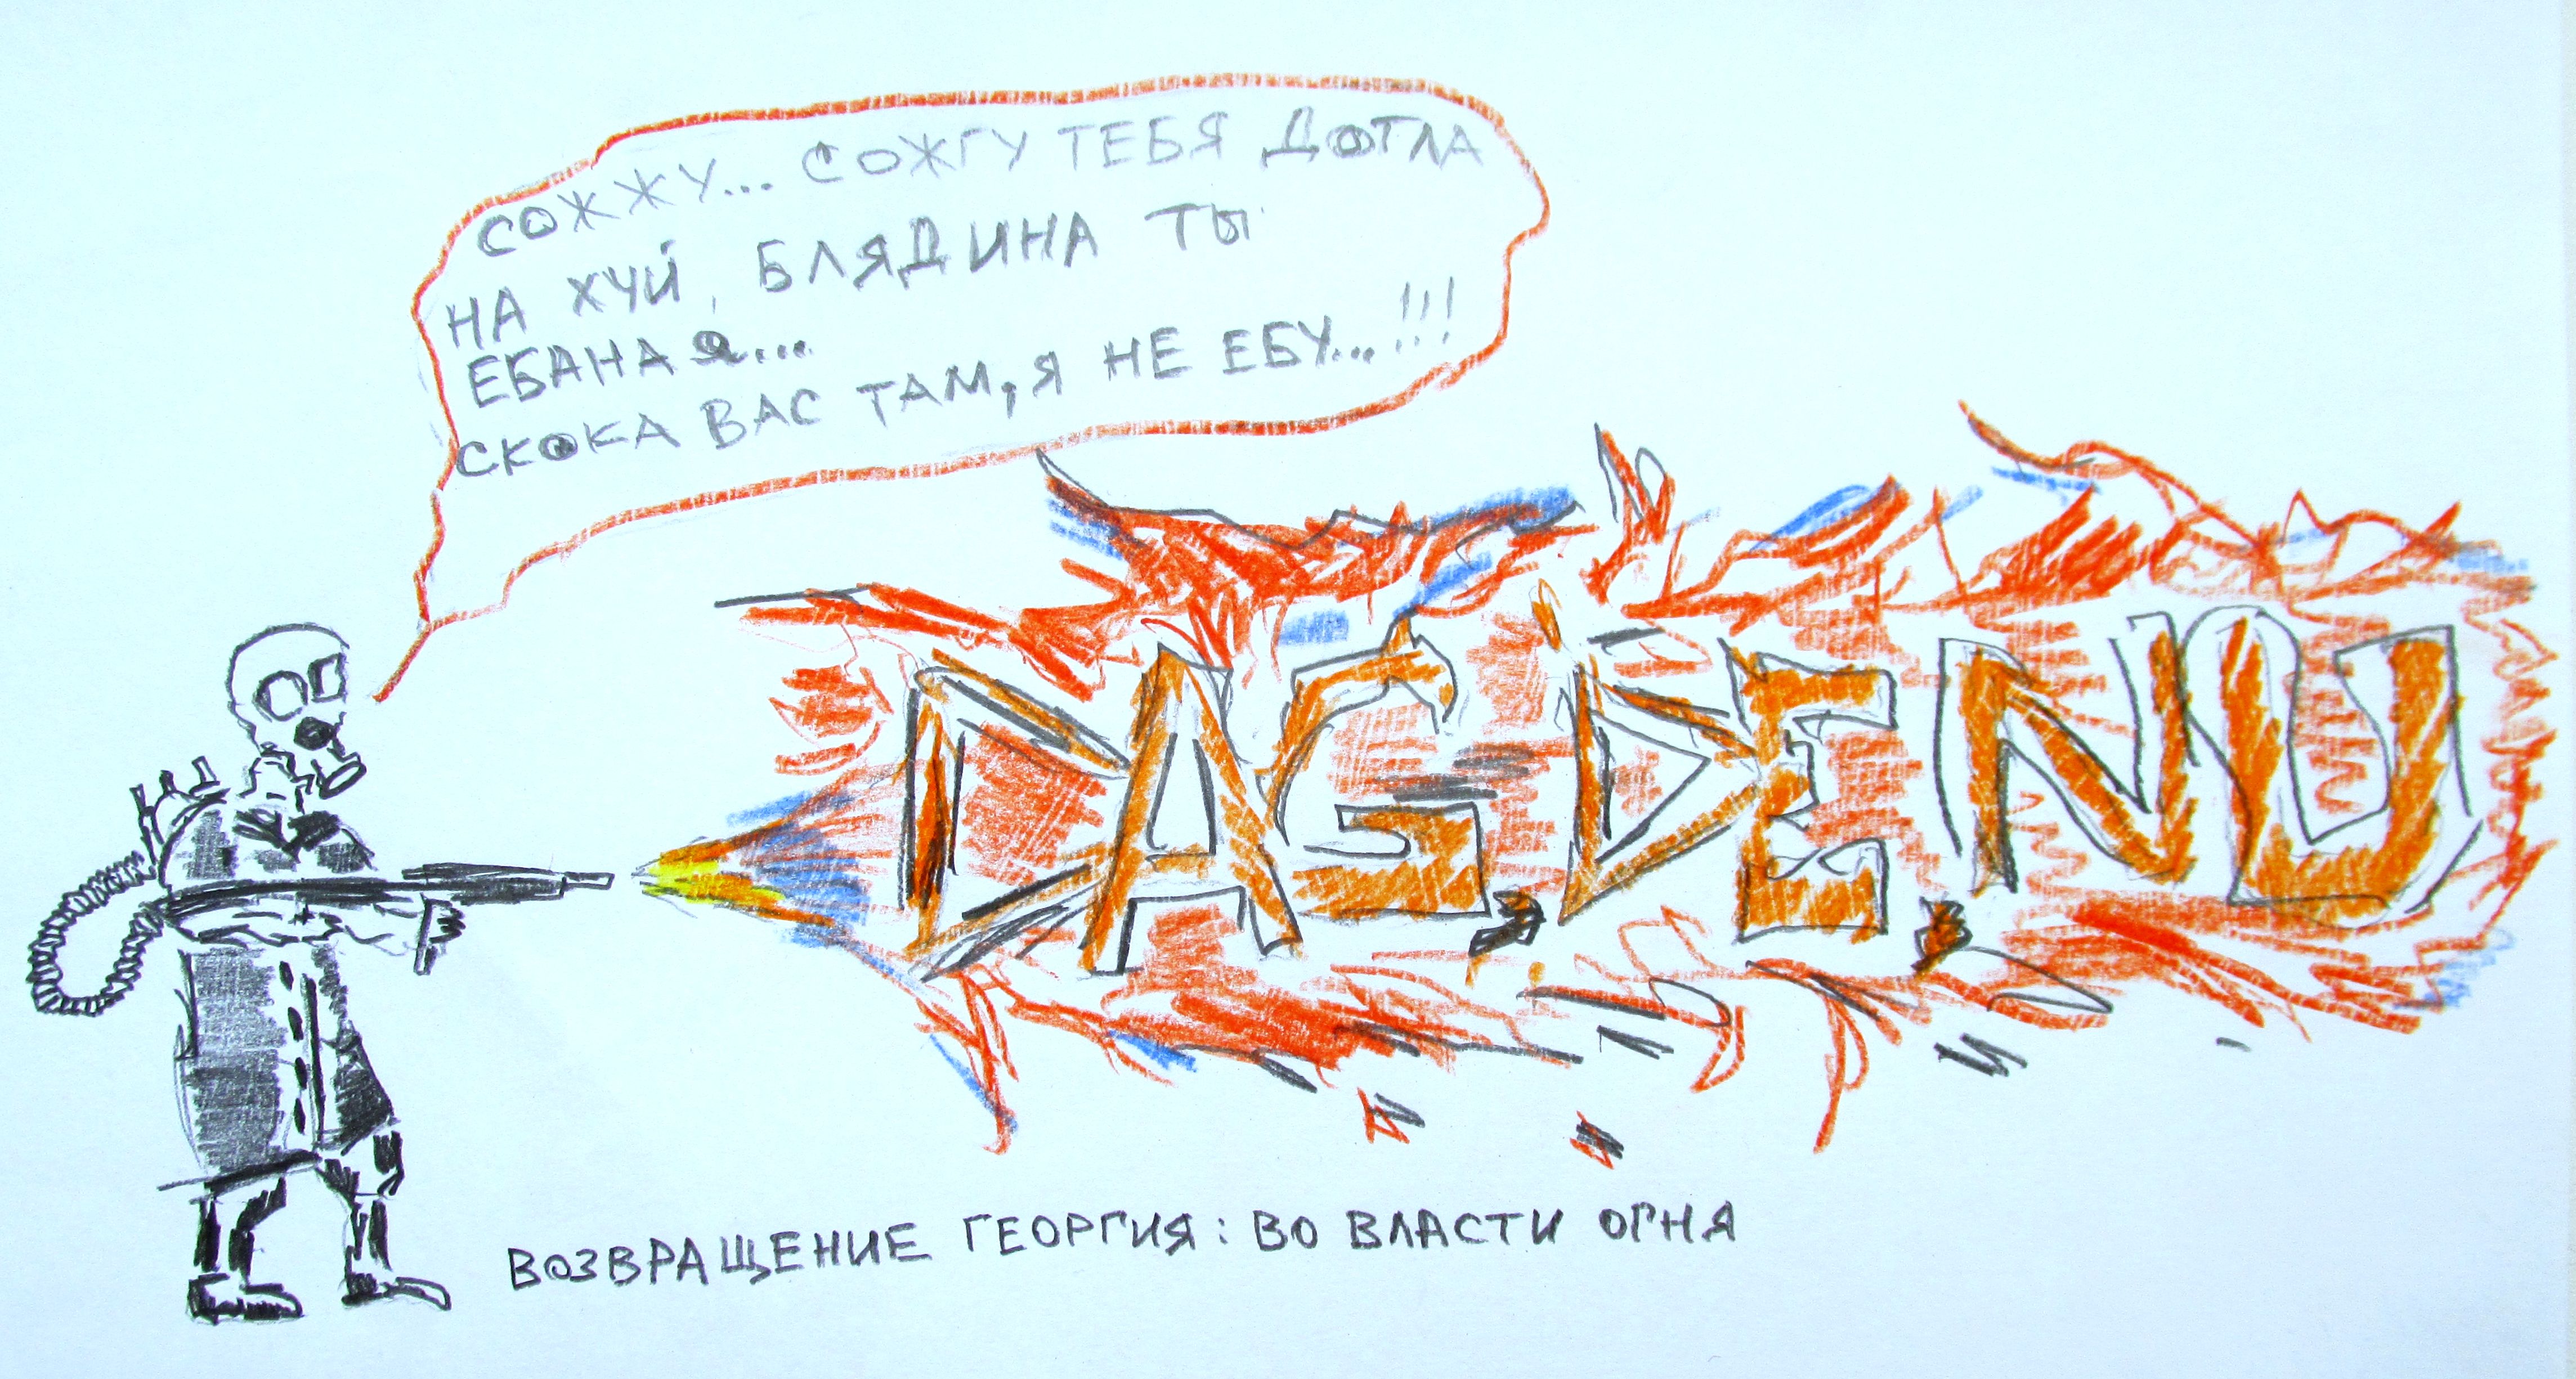 СОЖЖУ... СОЖГУ ТЕБЯ ДОТЛА
НА ХУЙ, БЛЯДИНА ТЫ
ЕБАНАЯ...
СКОКА ВАС ТАМ, Я НЕ ЕБУ...!!!
DAG, DE, NU
ВОЗВРАЩЕНИЕ ГЕОРГИЯ: ВО ВЛАСТИ ОГНЯ